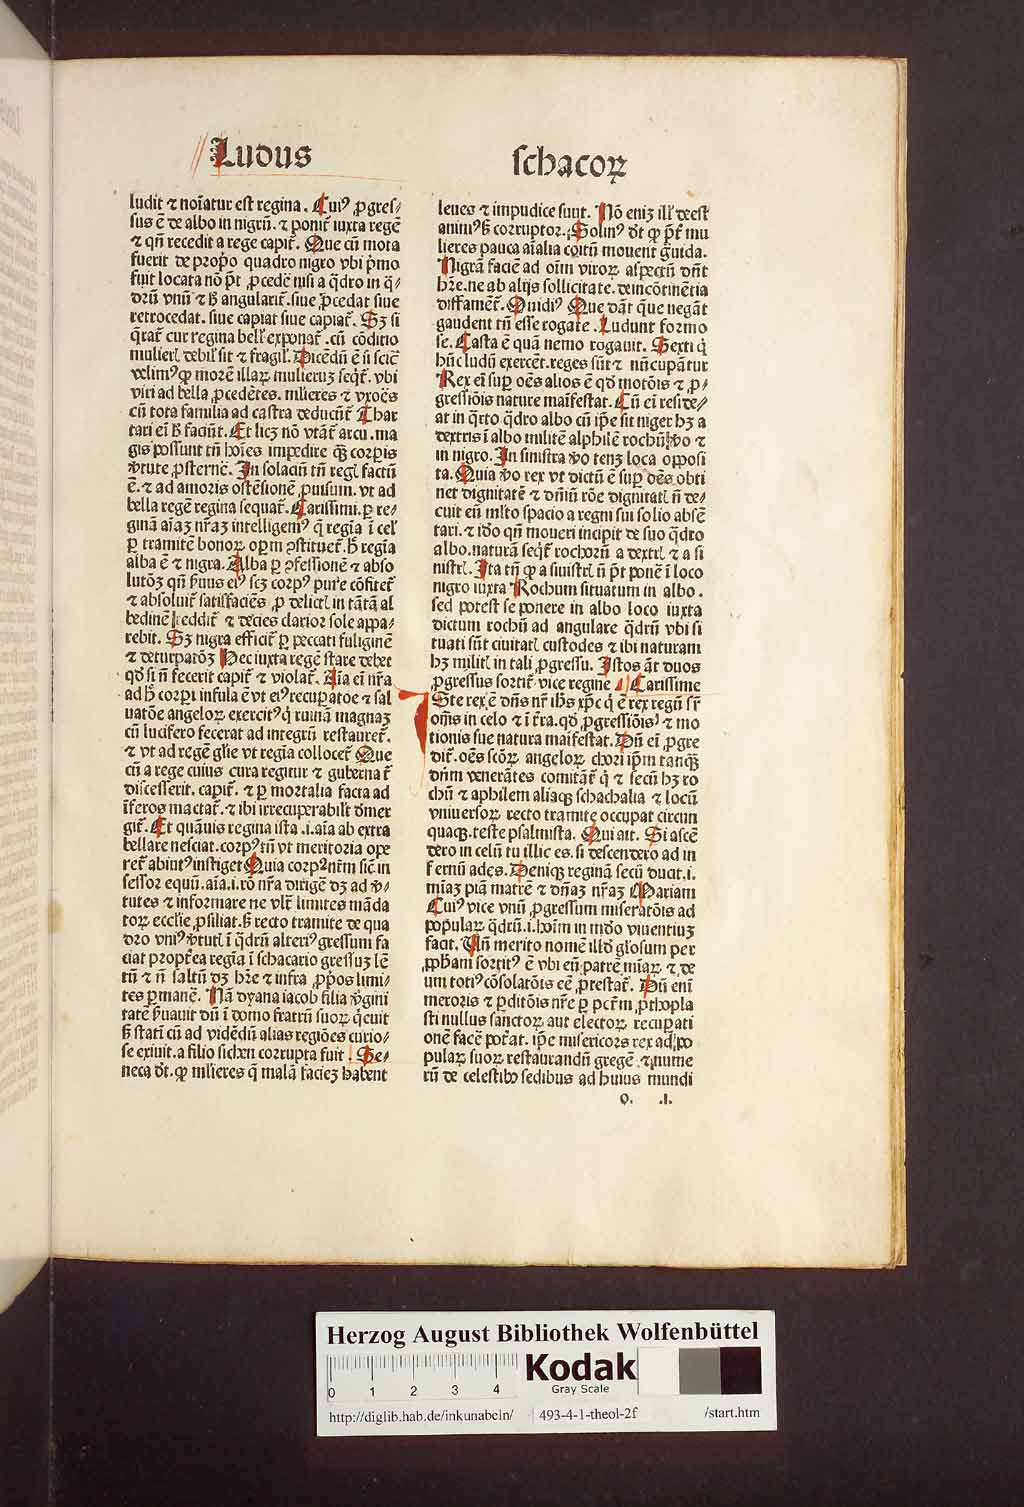 Ludus
schacoꝝ
ludit ⁊ noīatur est regina. Cuiꝰ ꝓgres/
sus ē de albo in nigrū. ⁊ ponit᷑ iuxta regē
⁊ qn̄ recedit a rege capit᷑. Que cū mota
fuerit de prop̄o quadro nigro vbi p̄mo
fuit locata nō p̄t ꝓcedē nisi a q̄dro in q̄/
drū vnū ⁊ ħ angularit᷑. siue ꝓcedat siue
retrocedat. siue capiat siue capiat᷑. Sꝫ si
q̄rat᷑ cur regina bell' exponat᷑. cū cōditio
mulieri debil' sit ⁊ fragil'. Dicēdū ē si
velimꝰ ꝙ morē illaꝝ mulierꝫ seqt᷑. vbi
viri ad bella ꝓcedētes. milieres ⁊ vxoēs
cū tota familia ad castra deducūt᷑ Thar
tari eī ħ faciūt. Et licꝫ nō vtāt᷑ arcu. ma
gis possunt tn̄ hoīes impedire qꝫ corꝑis
v̄tute ꝓsternē. In solaciū tn̄ regl factū
ē. ⁊ ad amoris ostēsionē ꝓuisum. vt ad
bella regē regina sequat᷑. Carissimi. ꝑ re/
ginā aīaꝫ nr̄aꝫ intelligemꝰ q̄ regīa ī cel'
ꝑ tramitē bonoꝝ oꝑm ꝯstituet᷑. ħ regīa
alba ē ⁊ nigra. Alba ꝑ ꝯfessionē ⁊ abso
lutōꝫ qn̄ p̄uus eiꝰ scꝫ corpꝰ pure cōfitet᷑
⁊ absoluit᷑ satisfaciēs ꝓ delictl in tātā al
bedinē reddit᷑ ⁊ decies clarior sole appa/
rebit. Sꝫ nigra efficit᷑ ꝑ peccati fuliginē
⁊ deturpatōꝫ Hec iuxta regē stare debet
qd̄ si n̄ fecerit capit᷑ ⁊ violat᷑. Aīa eī nr̄a
ad ħ corꝑi infula ē vt eiꝰ recuꝑatōe ⁊ sal
uatōe angeloꝝ exercitꝰ q̄ ruinā magnaꝫ
cū lucifero fecerat ad integrū restauret᷑.
⁊ vt ad regē gl̄ie vt regīa collocet᷑ Que
cū a rege cuius cura regitur ⁊ guberna t᷑
discesserit. capit᷑. ⁊ ꝑ mortalia facta ad
īferos mactat᷑. ⁊ ibi irrecuperabilr̄ d̄mer
git᷑. Et quāuis regina ista .i. aīa ab extra
bellare nesciat. corpꝰ tn̄ vt meritoria ope
ret᷑ abintꝰ instiget Quia corpꝰ nr̄m sic̄ in
sessor equū. aīa .i. rō nr̄a dirigē dꝫ ad v̄/
tutes ⁊ informare ne vlt᷑ limites māda
toꝝ eccl̄ie ꝓsiliat. ꝫ recto tramite de qua
dro vniꝰ v̄tutl ī q̄drū alteriꝰ gressum fa
ciat propt̄ea regīa ī schacario gressuꝫ lē
tū ⁊ n̄ saltū dꝫ hr̄e ⁊ infra ꝓp̄os limi/
tes ꝑmanē. Nā dyana iacob filia v̄gini
tatē ẜuauit dū ī domo fratrū suoꝝ q̄euit
ꝫ statī cū ad vidēdū alias regiōes curio/
se exiuit. a filio sichen corrupta fuit. Se/
neca d̄t. ꝙ mlieres q̄ malā facieꝫ habent
leues ⁊ impudice sunt. Nō enīꝫ ill' deest
animꝰ ꝫ corruptor. Solinꝰ d̄t ꝙ p̄t᷑ mu
lieres pauca aīalia coitū mouent gͥuida.
Nigrā faciē ad oīm viroꝝ aspectū dn̄t
hr̄e. ne ab alijs sollicitate. de incōtinētia
diffament᷑. Ouidiꝰ Que dāt q̄ue negāt
gaudent tn̄ esse rogate. Ludunt formo
se. Casta ē quā nemo rogauit. Sexti q̄
hūc ludū exercēt. reges sūt ⁊ nūcupātur
Rex eī suꝑ oēs alios ē qd̄ motōis ⁊ ꝓ/
gressiōis nature maīfestat. Cū eī reside/
at in q̄rto q̄dro albo cū ip̄e sit niger hꝫ a
dextris ī albo militē alphilē rochū v̄o ⁊
in nigro. In sinistra v̄o tenꝫ loca opposi
ta. Quia v̄o rex vt dictū ē suꝑ oēs obti
net dignitatē ⁊ dn̄iū rōe dignitatl n̄ de/
cuit eū mlto spacio a regni sui solio absē
tari. ⁊ īdo qn̄ moueri incipit de suo q̄dro
albo. naturā seqt᷑ rochorū a dextrl ⁊ a si
nistrl. Ita tn̄ ꝙ a sinistrl n̄ p̄t ponē ī loco
nigro iuxta Rochum situatum in albo.
sed potest se ponere in albo loco iuxta
dictum rochū ad angulare q̄drū vbi si
tuati sūt ciuitatl custodes ⁊ ibi naturam
hꝫ militl in tali ꝓgressu. Istos āt duos
ꝓgressus sortit᷑ vice regine Carissime
Iste rex ē dn̄s nr̄ ih̄s xp̄c q̄ ē rex regū sr̄
om̄s in celo ⁊ ī t̄ra. qd̄ ꝓgressiōisꝰ ⁊ mo
tionis sue natura maīfestat. Dū eī ꝓgre
dit᷑. oēs scōꝝ angeloꝝ chori ip̄m tanqꝫ
dn̄m venerātes comitāt᷑ q̄ ⁊ secū hꝫ ro
chū ⁊ aphilem aliaqꝫ schachalia ⁊ locū
vniuersoꝝ recto tramite occupat circun
quaqꝫ. teste psalmista. Qui ait. Si ascē
dero in celū tu illic es. si descendero ad in
fernū ades. Deniqꝫ reginā secū ducit .i.
mīaꝫ piā matrē ⁊ dn̄aꝫ nr̄aꝫ Mariam
Cuiꝰ vice vnū ꝓgressum miseratōis ad
populaꝝ q̄drū .i. hoīm in mūdo viuentiuꝫ
facit. Un̄ merito nomē illd̄ gl̄osum per
ꝓph̄am sortitꝰ ē vbi eū patrē mīaꝝ ⁊ de
um totiꝰ cōsolatōis eē ꝓtestat᷑. Dū enī
meroris ⁊ ꝑditōis nr̄e ꝑ pct̄m ꝓthopla
sti nullus sanctoꝝ aut electoꝝ recuꝑati
onē facē pot̄at. ip̄e misericors rex ad po
pulaꝝ suoꝝ restaurandū gregē. ⁊ nume
rū de celestibꝰ sedibus ad huius mundi
O. .I.
Herzog August Bibliothek Wolfenbüttel
0 1 2 3 4
Kodak
Gray Scale
http://diglib.hab.de/inkunabeln/ 493-4-1-theol-2f /start.htm